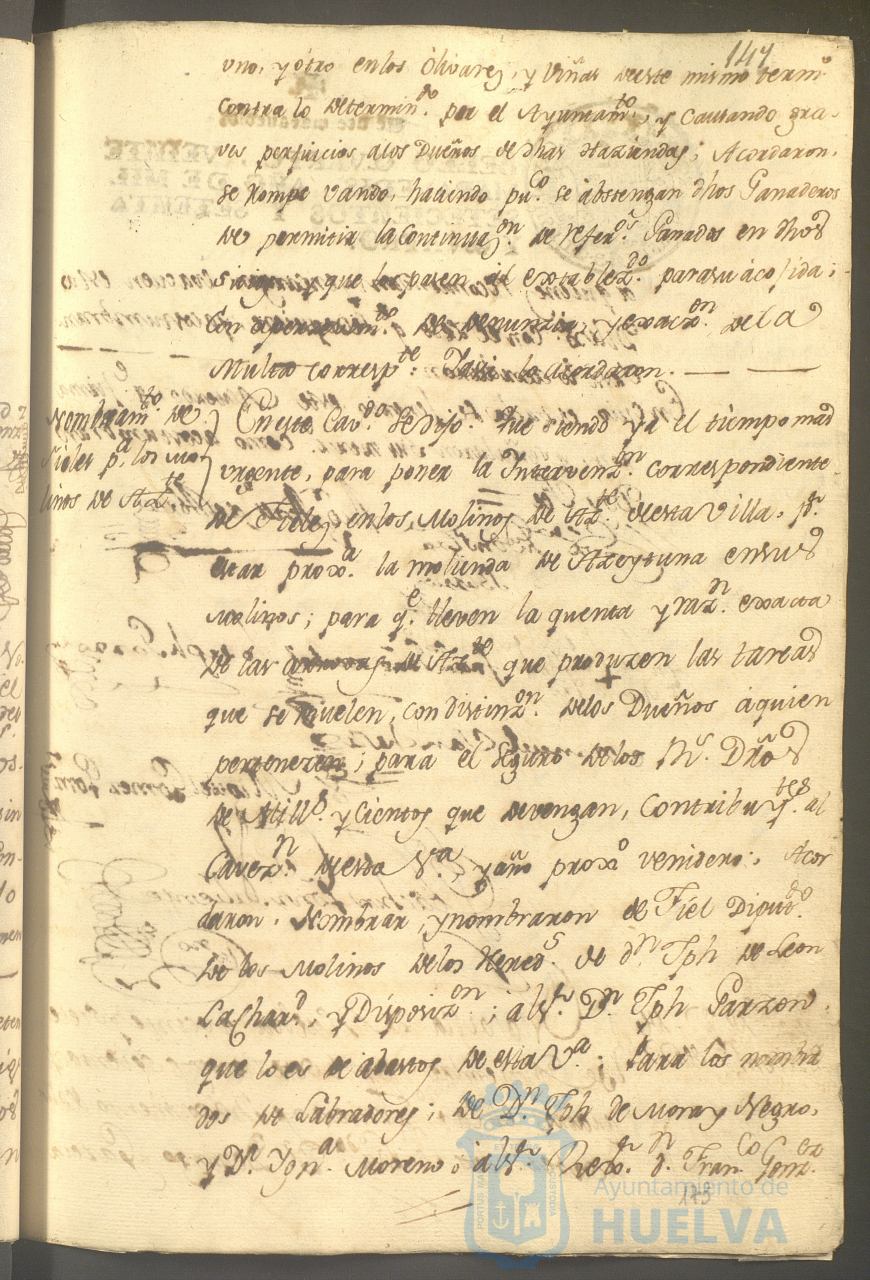 147
uno, y otro en los Olivares, y Viñas deste mismo termº
contra lo determindº. por el Ayuntamtº., y causando gra-
ves perjuicios a los Dueños de dhas Haziendas; Acordaron.
se Rompe vando, haciendo puCo. se abstengan dhos Ganaderos
de permitir la Continuazon. de referos. Ganados en dhos
sitios, y que los pasen al establezdo. para su acojida;
Con apercevimto. de denunzia, y exaczon. de la
Multa correspte. Y assi lo acordaron.
Nombramto. de
Fieles pa. los mo-
linos de Azte
En este Cavdo. se dijo. Que siendo ya el tiempo mas
urgente, para poner la Intervenzon. correspondiente
de Fieles en los Molinos de Azte. desta Villa, pr.
estar proxa. la molienda de Azeytuna en sus
Molinos; para qe. lleven la quenta y razn. exacta
de las arrovas de Azte que produzen las tareas
que se muelen, con distinzon. de los Dueños a quien
pertenezen; para el Seguro de los Rs. Dros
de Mills. y Cientos que devengan, Contribuytes. al
Cavezn. desta Va. y año proxo venidero; Acor
daron. Nombrar, y nombraron de Fiel Diputdo.
de los Molinos de los Hereds. de dn Jph de Leon
La Chard, y Disposizon.; al Sr. Dn. Jph Garzon.
que lo es de abastos de esta Va; Para los nombra
dos de Labradores; de Dn Jph de Mora y Negro.
y Dn. Igna. Moreno al Sr. Rexor. dn. FranCo Gonz.
175
Ayuntamiento de
HUELVA
PORTUS MARIS
CUSTODIA